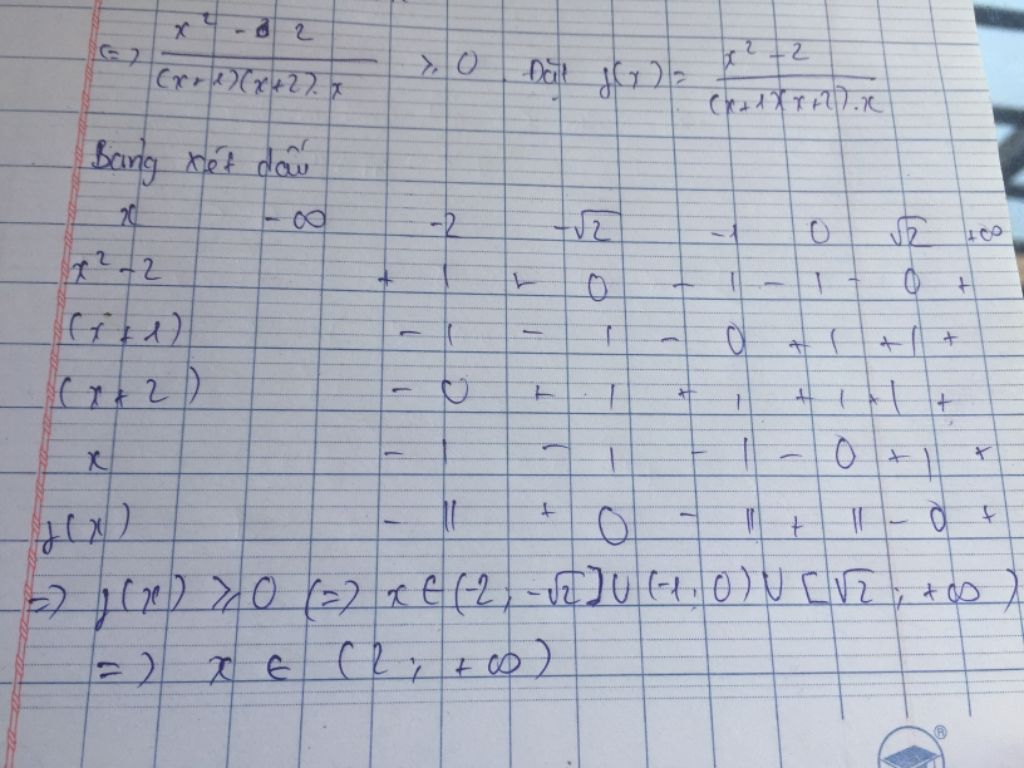 <=> (x² - 2)/((x+1)(x+2).x) ≥ 0. Đặt f(x) = (x² - 2)/((x+1)(x+2).x)
Bảng xét dấu
x -∞ -2 -√2 -1 0 √2 +∞
x² - 2 + | + 0 - | - | - 0 +
(x + 1) - | - | - 0 + | + | +
(x + 2) - 0 + | + | + | + | +
x - | - | - | - 0 + | +
f(x) - || + 0 - || + || - 0 +
=> f(x) ≥ 0 (=) x ∈ (-2; -√2] ∪ (-1; 0) ∪ [√2; +∞)
=> x ∈ (2; +∞)
®